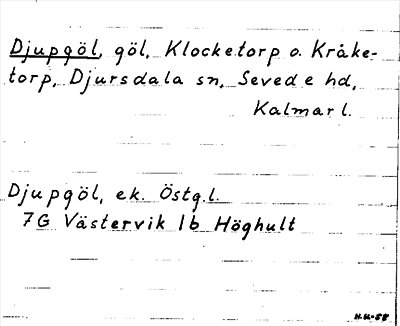 Djupgöl, göl, Klocketorp o. Kråke-
torp, Djursdala sn, Sevede hd,
Kalmar l.
Djupgöl, ek. Östg.l.
7G Västervik 1b Höghult
H.U-58